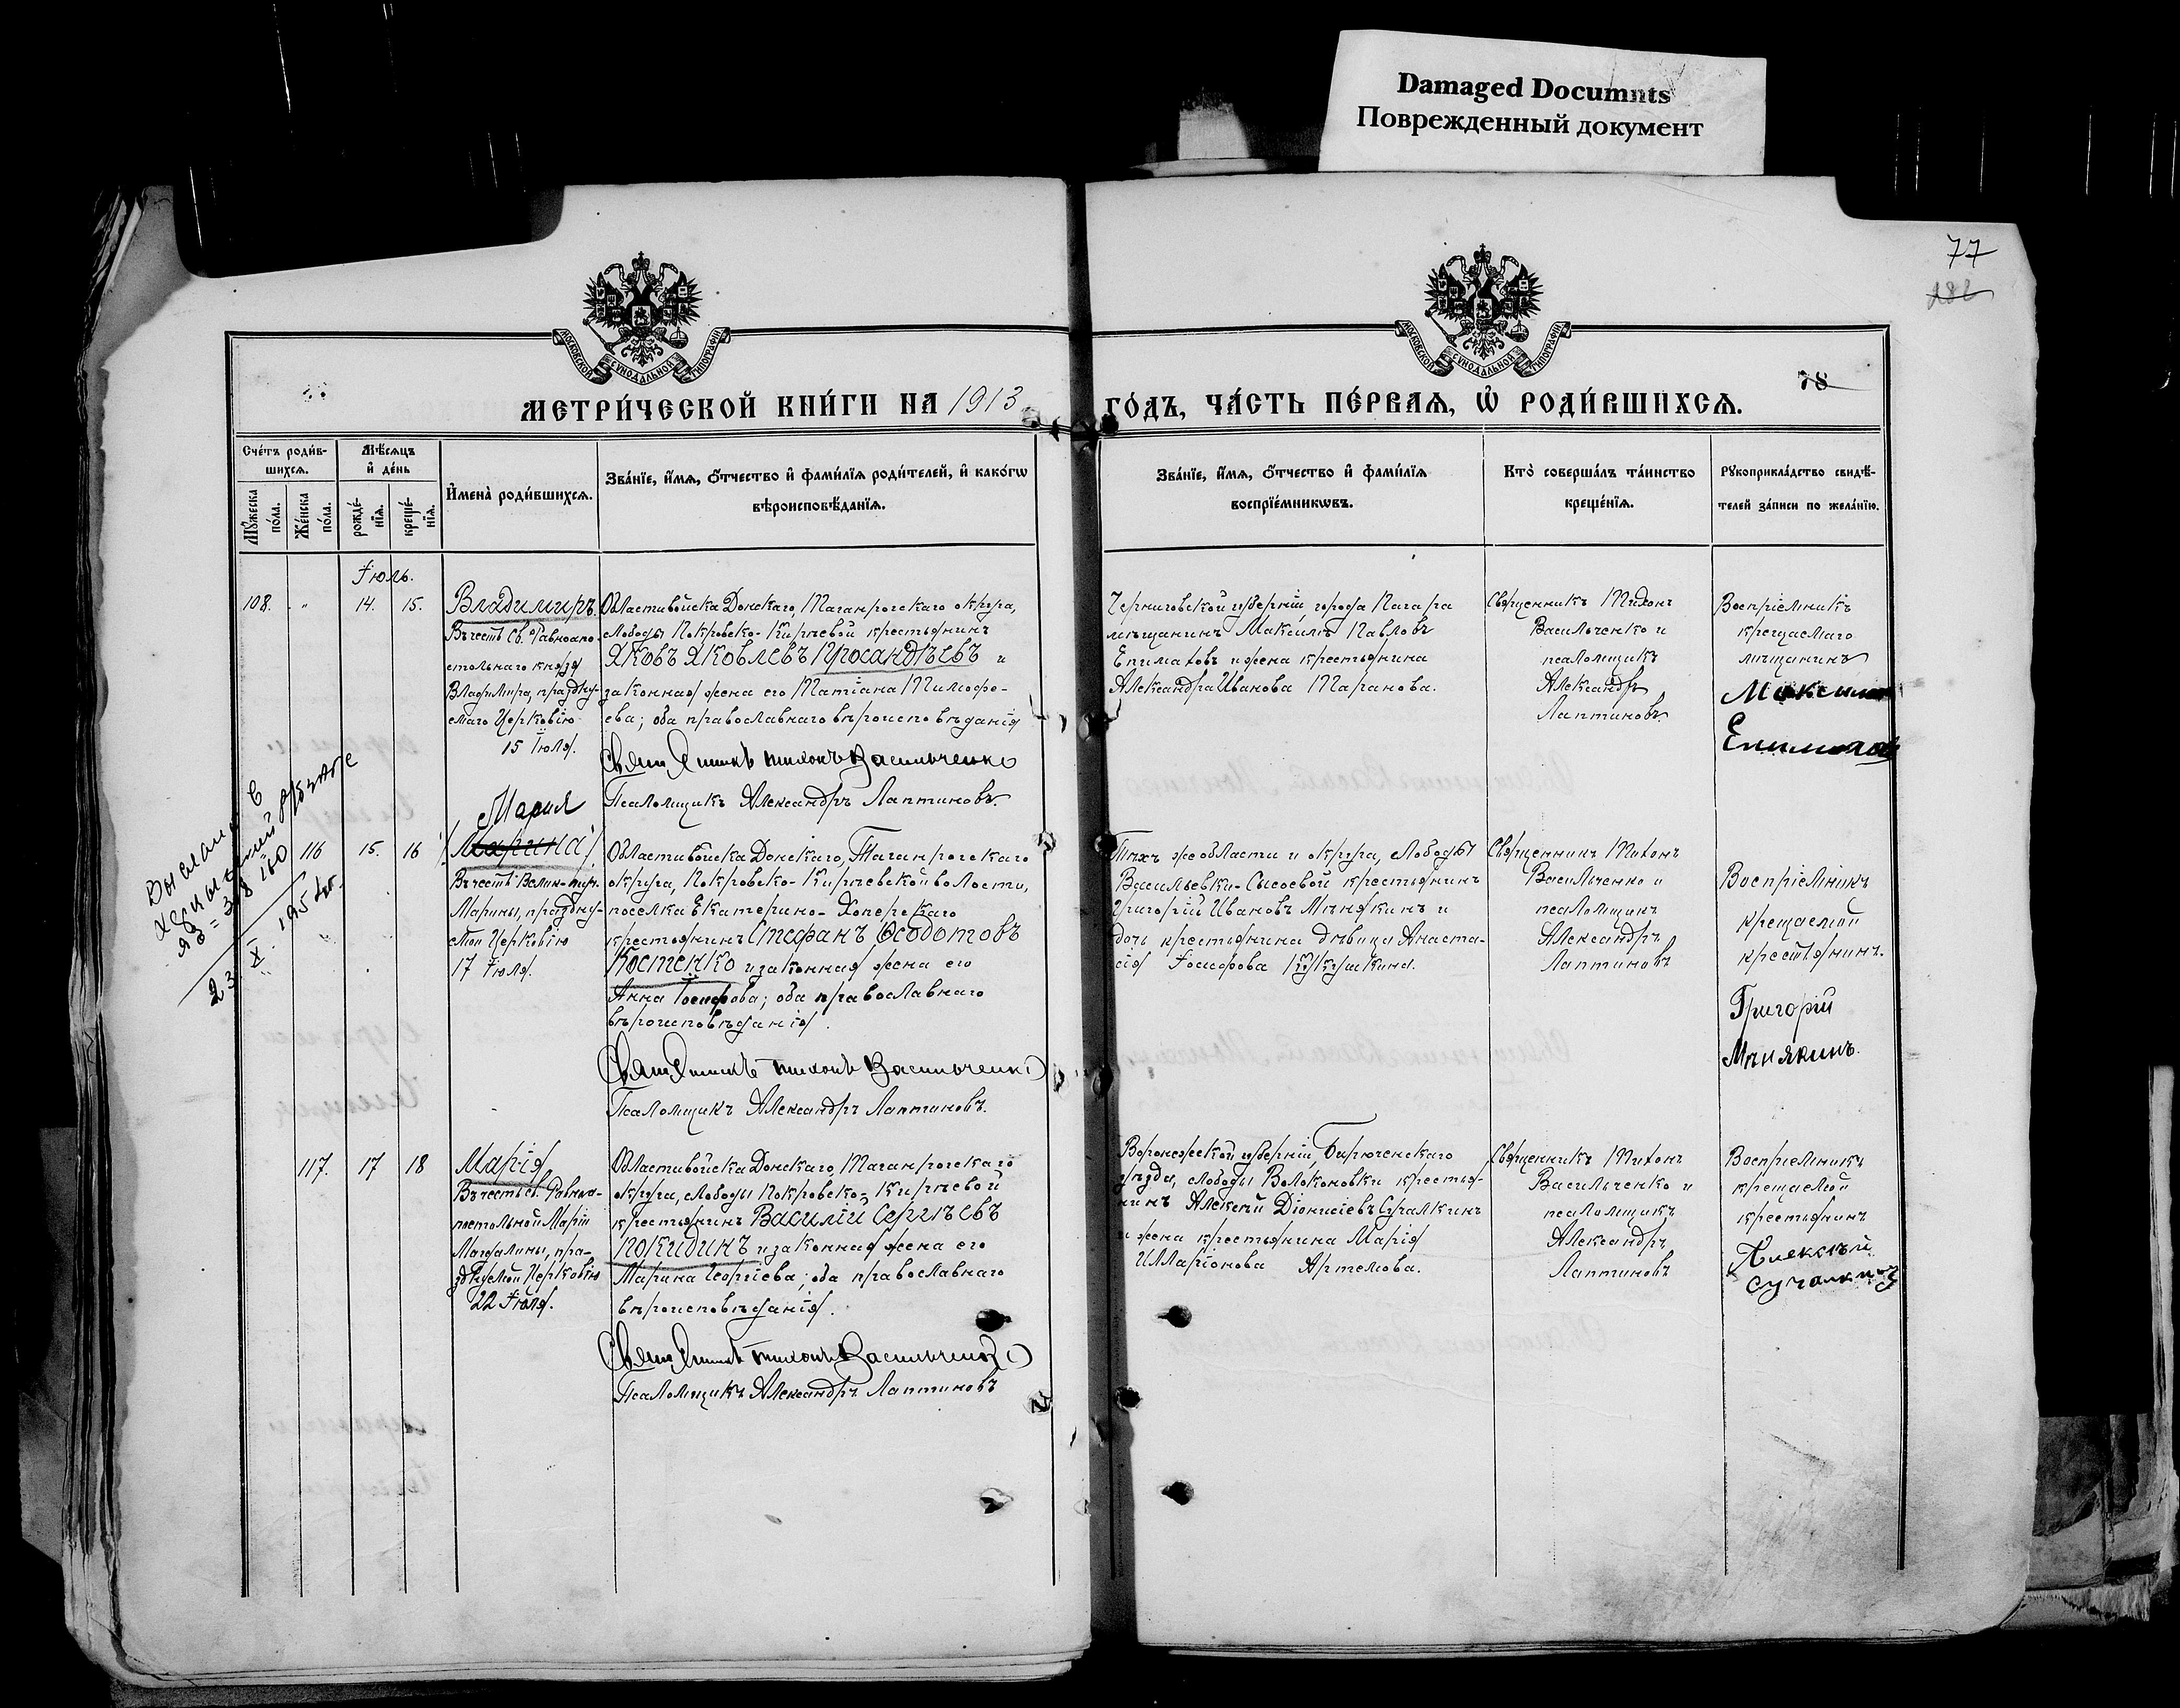 Damaged Documnts
Поврежденный документ
77
182
78
МОСКОВСКОЙ СѴНОДАЛЬНОЙ ТИПОГРАФІИ
МОСКОВСКОЙ СѴНОДАЛЬНОЙ ТИПОГРАФІИ
МЕТРИ́ЧЕСКОЙ КНИ́ГИ НА 1913
ГО́ДЪ, ЧА́СТЬ ПЕ́РВАЯ, Ѡ҆ РОДИ́ВШИХСЯ.
Сче́тъ роди́в-
шихся.
Мѣ́сяцъ
и҆ де́нь
Мꙋ́жеска по́ла.
Же́нска по́ла.
рожде́-
нїя.
креще́-
нїя.
И҆мена̀ роди́вшихся.
Зва́нїе, и҆́мя, ѻ҆́тчество и҆ фами́лїя роди́телей, и҆ како́гѡ
вѣроисповѣ́данїя.
Зва́нїе, и҆́мя, ѻ҆́тчество и҆ фами́лїя
воспрїе́мникѡвъ.
Кто̀ соверша́лъ та́инство
креще́нїя.
Рꙋкоприкла́дство свидѣ́-
телей за́писи по жела́нїю.
Іюль.
108. " 14. 15.
Владиміръ.
Въ честь Св. Равноапо-
стольнаго князя
Владиміра, праздну-
емаго Церковію
15 Іюля.
Области войска Донскаго, Таганрогскаго округа,
слободы Покровско-Киреевой крестьянинъ
Яковъ Яковлевъ Просандѣевъ и
законная жена его Татіана Тимофе-
ева; оба православнаго вѣроисповѣданія
Священникъ Тихонъ Васильченко
Псаломщикъ Александръ Лаптиновъ.
Черниговской губерніи, города Погара
мѣщанинъ Максимъ Павловъ
Епиматовъ и жена крестьянина
Александра Иванова Таранова.
Священникъ Тихонъ
Васильченко и
псаломщикъ
Александръ
Лаптиновъ.
Воспріемникъ
крещаемаго
мѣщанинъ
Максимъ
Епиматовъ
Выслано
23. X. 1954г.
Мария
116 15. 16
Марина
Въ честь Велик-муч.
Марины, праздну-
емой Церковію
17 Іюля.
Области войска Донскаго, Таганрогскаго
округа, Покровско-Киреевской волости,
поселка Екатерино-Хоперскаго
крестьянинъ Стефанъ Ѳеодотовъ
Костенко и законная жена его
Анна Іосифова; оба православнаго
вѣроисповѣданія.
Священникъ Тихонъ Васильченко
Псаломщикъ Александръ Лаптиновъ.
Тѣхъ же области и округа, слободы
Васильевки-Сысоевой крестьянинъ
Григорій Ивановъ Мѣнякинъ и
дочь крестьянина дѣвица Анаста-
сія Іосифова Кукушкина.
Священникъ Тихонъ
Васильченко и
псаломщикъ
Александръ
Лаптиновъ
Воспріемникъ
крещаемой
крестьянинъ.
Григорій
Мѣнякинъ.
117. 17 18
Марія
Въ честь св. Равноа-
постольной Маріи
Магдалины, пра-
зднуемой Церковію
22 Іюля.
Области войска Донскаго, Таганрогскаго
округа, слободы Покровско-Киреевой
крестьянинъ Василій Сергѣевъ
Покидинъ и законная жена его
Марина Георгіева; оба православнаго
вѣроисповѣданія.
Священникъ Тихонъ Васильченко
Псаломщикъ Александръ Лаптиновъ
Воронежской губерніи, Бирюченскаго
уѣзда, слободы Волоконовки крестья-
нинъ Алексѣй Діонисіевъ Сучалкинъ
и жена крестьянина Марія
Илларіонова Артемова.
Священникъ Тихонъ
Васильченко и
псаломщикъ
Александръ
Лаптиновъ
Воспріемникъ
крещаемой
крестьянинъ
Алексѣй
Сучалкинъ